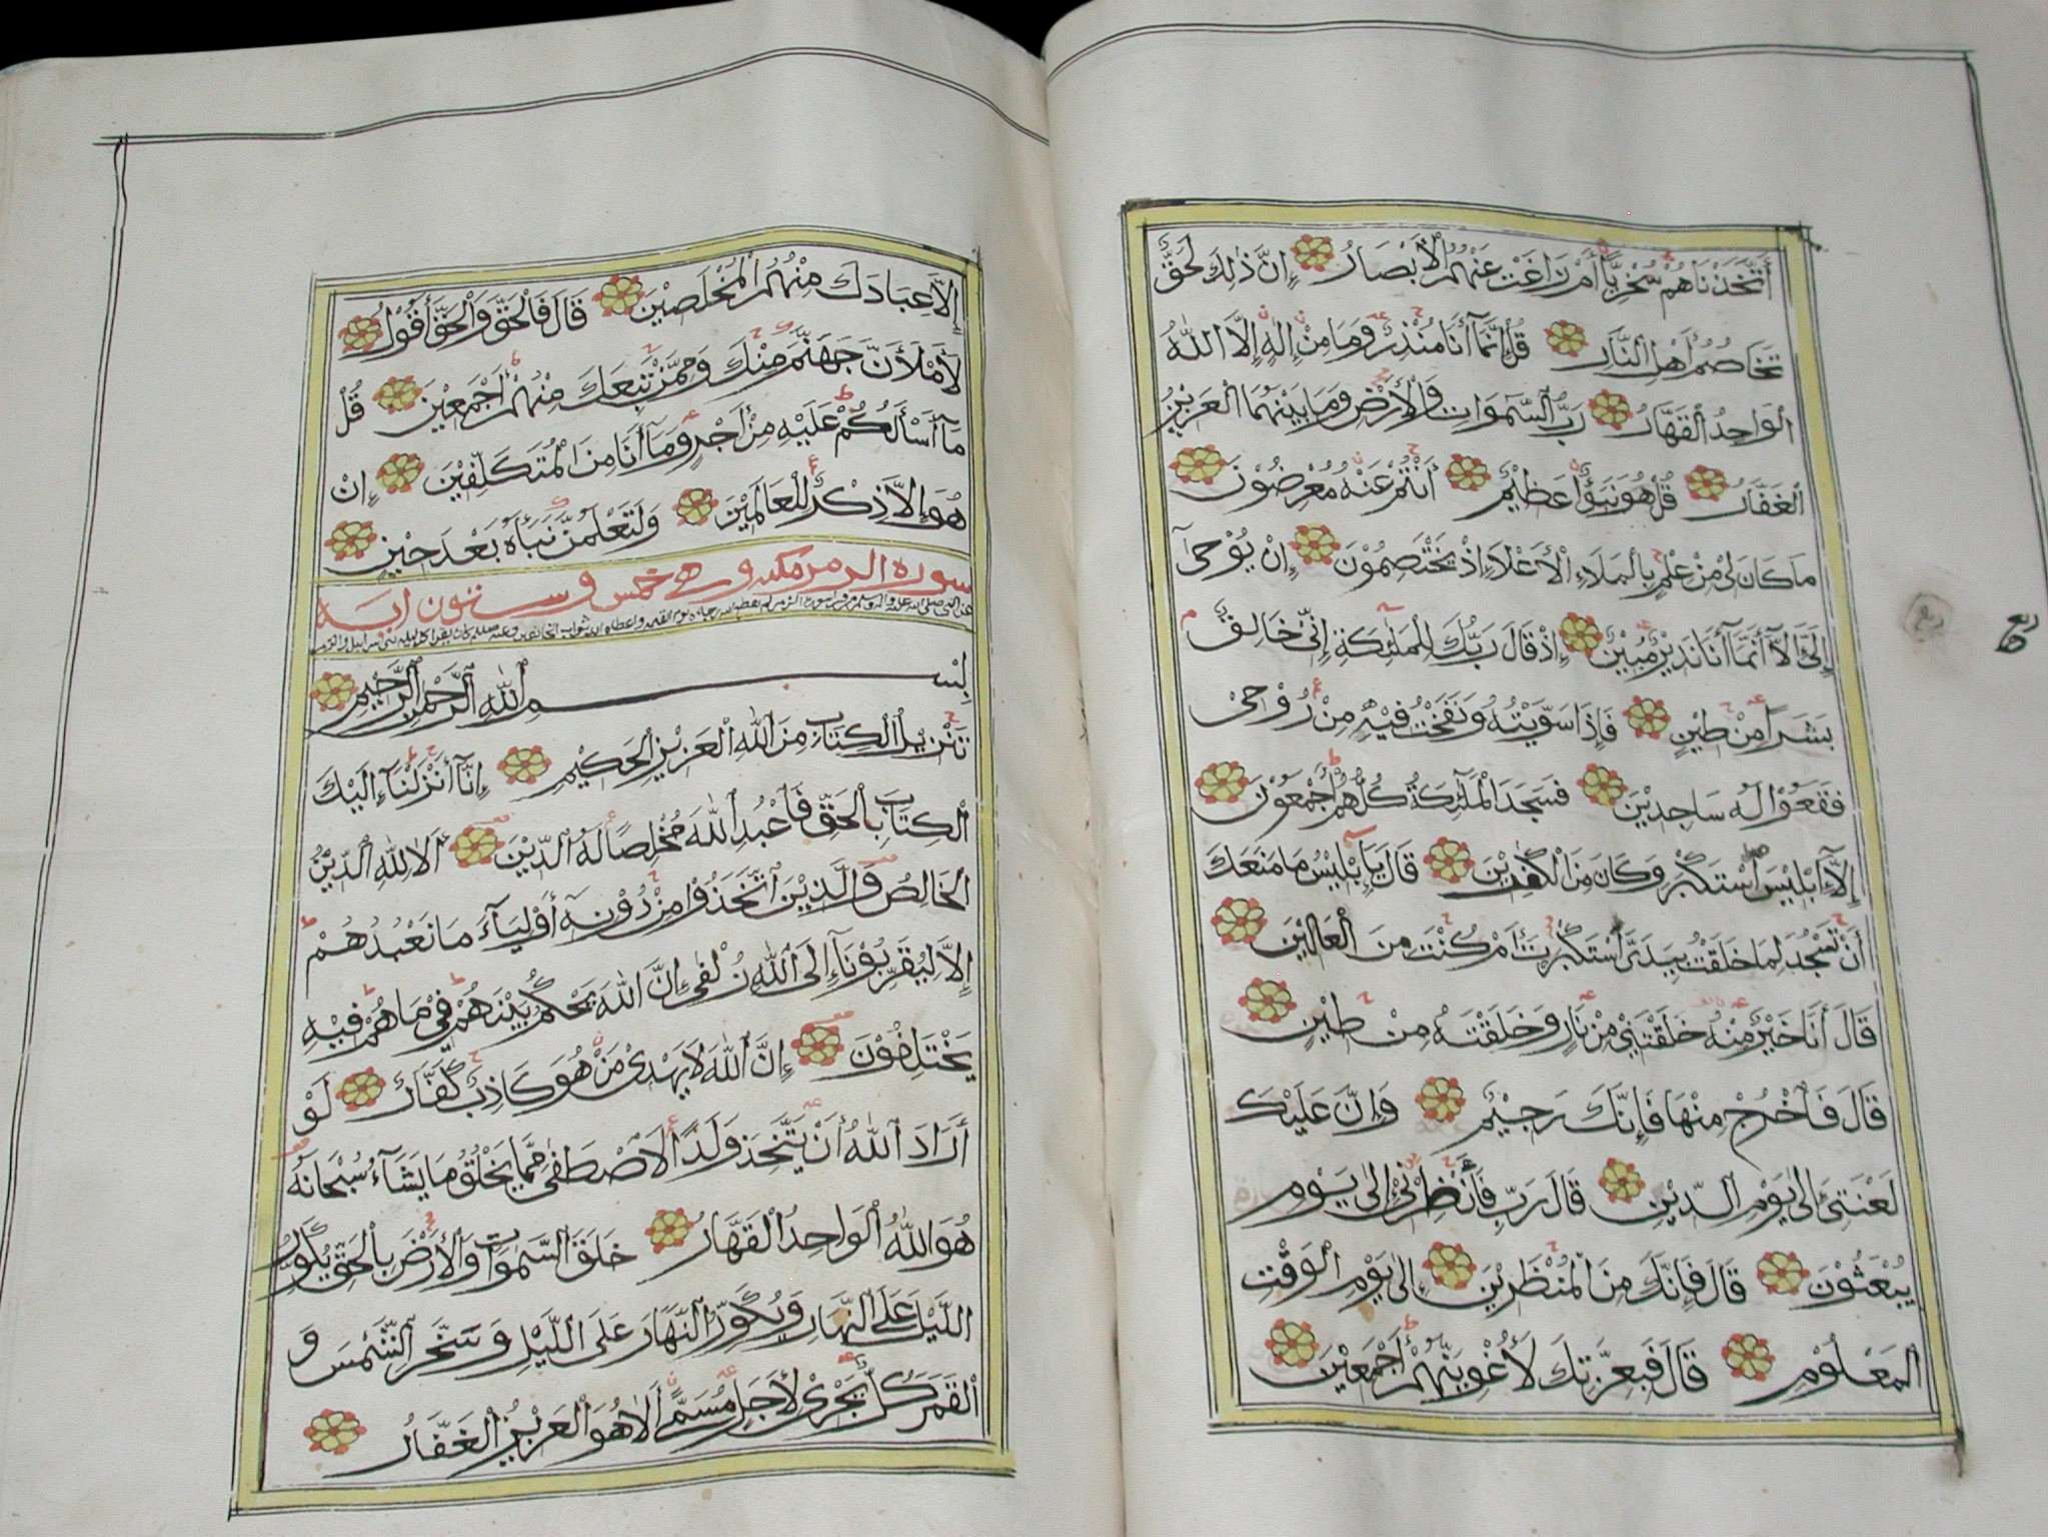 أَتَّخَذْنَاهُمْ سُخْرِيًّا أَمْ زَاغَتْ عَنْهُمُ الْأَبْصَارُ إِنَّ ذَٰلِكَ لَحَقٌّ
تَخَاصُمُ أَهْلِ النَّارِ قُلْ إِنَّمَا أَنَا مُنْذِرٌ وَمَا مِنْ إِلَٰهٍ إِلَّا اللَّهُ
الْوَاحِدُ الْقَهَّارُ رَبُّ السَّمٰوَاتِ وَالْأَرْضِ وَمَا بَيْنَهُمَا الْعَزِيزُ
الْغَفَّارُ قُلْ هُوَ نَبَؤٌا عَظِيْمٌ أَنْتُمْ عَنْهُ مُعْرِضُوْنَ
مَا كَانَ لِيْ مِنْ عِلْمٍ بِالْمَلَاءِ الْأَعْلَا إِذْ يَخْتَصِمُوْنَ إِنْ يُوْحَىٰ
إِلَيَّ إِلَّا أَنَّمَا أَنَا نَذِيْرٌ مُبِيْنٌ إِذْ قَالَ رَبُّكَ لِلْمَلٰئِكَةِ إِنِّيْ خَالِقٌ
بَشَرًا مِنْ طِيْنٍ فَإِذَا سَوَّيْتُهُ وَنَفَخْتُ فِيْهِ مِنْ رُوْحِيْ
فَقَعُوْا لَهُ سَاجِدِيْنَ فَسَجَدَ الْمَلٰئِكَةُ كُلُّهُمْ أَجْمَعُوْنَ
إِلَّا إِبْلِيْسَ اسْتَكْبَرَ وَكَانَ مِنَ الْكٰفِرِيْنَ قَالَ يَا إِبْلِيْسُ مَا مَنَعَكَ
أَنْ تَسْجُدَ لِمَا خَلَقْتُ بِيَدَيَّ أَسْتَكْبَرْتَ أَمْ كُنْتَ مِنَ الْعَالِيْنَ
قَالَ أَنَا خَيْرٌ مِنْهُ خَلَقْتَنِيْ مِنْ نَارٍ وَخَلَقْتَهُ مِنْ طِيْنٍ
قَالَ فَاخْرُجْ مِنْهَا فَإِنَّكَ رَجِيْمٌ وَإِنَّ عَلَيْكَ
لَعْنَتِيْ إِلَىٰ يَوْمِ الدِّيْنِ قَالَ رَبِّ فَأَنْظِرْنِيْ إِلَىٰ يَوْمِ
يُبْعَثُوْنَ قَالَ فَإِنَّكَ مِنَ الْمُنْظَرِيْنَ إِلَىٰ يَوْمِ الْوَقْتِ
الْمَعْلُوْمِ قَالَ فَبِعِزَّتِكَ لَأُغْوِيَنَّهُمْ أَجْمَعِيْنَ
إِلَّا عِبَادَكَ مِنْهُمُ الْمُخْلَصِيْنَ قَالَ فَالْحَقُّ وَالْحَقَّ أَقُوْلُ
لَأَمْلَأَنَّ جَهَنَّمَ مِنْكَ وَمِمَّنْ تَبِعَكَ مِنْهُمْ أَجْمَعِيْنَ قُلْ
مَا أَسْأَلُكُمْ عَلَيْهِ مِنْ أَجْرٍ وَمَا أَنَا مِنَ الْمُتَكَلِّفِيْنَ إِنْ
هُوَ إِلَّا ذِكْرٌ لِلْعَالَمِيْنَ وَلَتَعْلَمُنَّ نَبَأَهُ بَعْدَ حِيْنٍ
سورة الزمر مكية وهي خمس وستون آية
بِسْمِ اللَّهِ الرَّحْمٰنِ الرَّحِيْمِ
تَنْزِيلُ الْكِتَابِ مِنَ اللَّهِ الْعَزِيْزِ الْحَكِيْمِ إِنَّا أَنْزَلْنَا إِلَيْكَ
الْكِتَابَ بِالْحَقِّ فَاعْبُدِ اللَّهَ مُخْلِصًا لَهُ الدِّيْنَ أَلَا لِلَّهِ الدِّيْنُ
الْخَالِصُ وَالَّذِيْنَ اتَّخَذُوْا مِنْ دُوْنِهِ أَوْلِيَآءَ مَا نَعْبُدُهُمْ
إِلَّا لِيُقَرِّبُوْنَا إِلَى اللَّهِ زُلْفَىٰ إِنَّ اللَّهَ يَحْكُمُ بَيْنَهُمْ فِيْ مَا هُمْ فِيْهِ
يَخْتَلِفُوْنَ إِنَّ اللَّهَ لَا يَهْدِيْ مَنْ هُوَ كَاذِبٌ كَفَّارٌ لَوْ
أَرَادَ اللَّهُ أَنْ يَتَّخِذَ وَلَدًا لَاصْطَفَىٰ مِمَّا يَخْلُقُ مَا يَشَآءُ سُبْحَانَهُ
هُوَ اللَّهُ الْوَاحِدُ الْقَهَّارُ خَلَقَ السَّمٰوَاتِ وَالْأَرْضَ بِالْحَقِّ يُكَوِّرُ
اللَّيْلَ عَلَى النَّهَارِ وَيُكَوِّرُ النَّهَارَ عَلَى اللَّيْلِ وَسَخَّرَ الشَّمْسَ وَ
الْقَمَرَ كُلٌّ يَجْرِيْ لِأَجَلٍ مُسَمًّى أَلَا هُوَ الْعَزِيْزُ الْغَفَّارُ